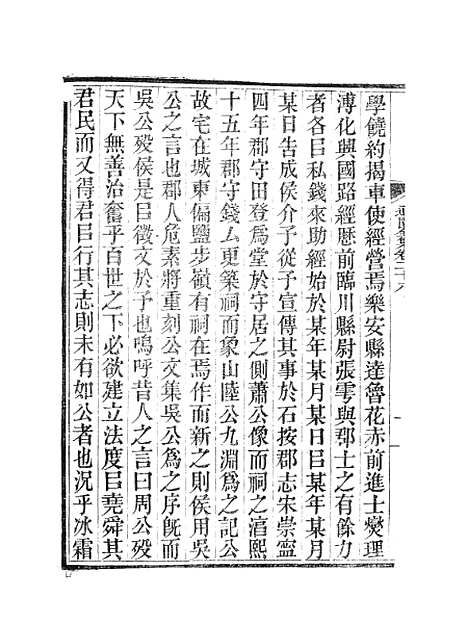 學饒約揭車使經營焉樂安縣達魯花赤前進士燮理
溥化興國路經歷前臨川縣尉張雩與郡士之有餘力
者各㠯私錢來助經始於某年某月某日㠯某年某月
某日告成侯介予從子宣傳其事於石按郡志宋崇寧
四年郡守田登爲堂於守居之側肅公像而祠之湻熙
十五年郡守錢厶更築祠而象山陸公九淵爲之記公
故宅在城東偏鹽步嶺有祠在焉作而新之則侯用吳
公之言也郡人危素將重刻公文集吳公爲之序旣而
吳公歿侯是㠯徵文於予也嗚呼昔人之言曰周公歿
天下無善治奮乎百世之下必欲建立法度㠯堯舜其
君民而又得君㠯行其志則未有如公者也況乎冰霜